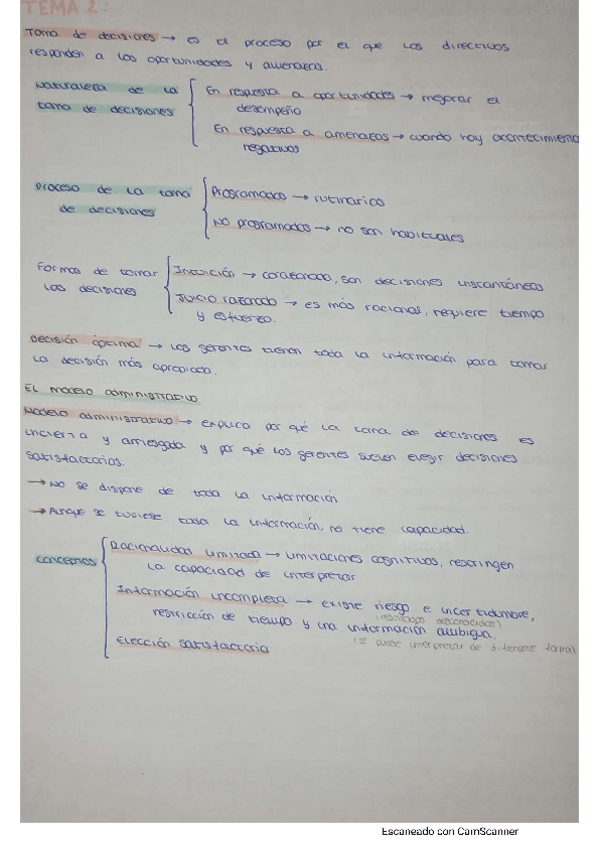 TEMA 2:
Toma de decisiones → es el proceso por el que los directivos
responden a las oportunidades y amenazas.
Naturaleza de la
toma de decisiones
En respuesta a oportunidades → mejorar el
desempeño
En respuesta a amenazas → cuando hay acontecimientos
negativos
Proceso de la toma
de decisiones
Programadas → rutinarias
No programadas → no son habituales
Formas de tomar
las decisiones
Intuición → corazonada, son decisiones instantáneas
Juicio razonado → es más racional, requiere tiempo
y esfuerzo.
Decisión óptima → los gerentes tienen toda la información para tomar
la decisión más apropiada.
El modelo administrativo
Modelo administrativo → explica por qué la toma de decisiones es
incierta y arriesgada y por qué los gerentes suelen elegir decisiones
satisfactorias.
→ No se dispone de toda la información
→ Aunque se tuviese toda la información, no tiene capacidad.
Conceptos
Racionalidad limitada → limitaciones cognitivas, restringen
la capacidad de interpretar
Información incompleta → existe riesgo e incertidumbre,
(resultados desconocidos)
restricción de tiempo y una información ambigua.
(se puede interpretar de diferente forma)
Elección satisfactoria
Escaneado con CamScanner